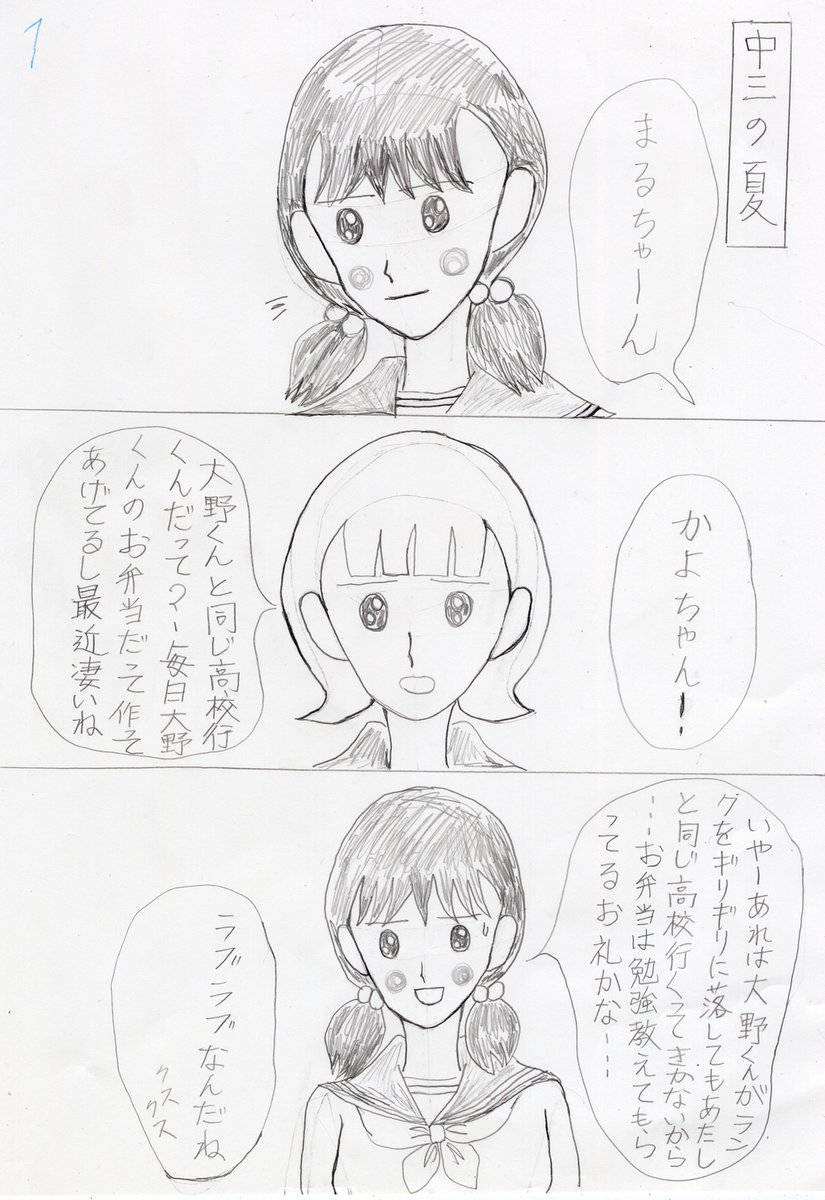 1
中三の夏
まるちゃーん
かよちゃん!
大野くんと同じ高校行
くんだって?ー毎日大野
くんのお弁当だって作って
あげてるし最近凄いね
いやーあれは大野くんがラン
クをギリギリに落してもあたし
と同じ高校行くってきかないから
……お弁当は勉強教えてもら
ってるお礼かな……
ラブラブなんだね
クス
クス